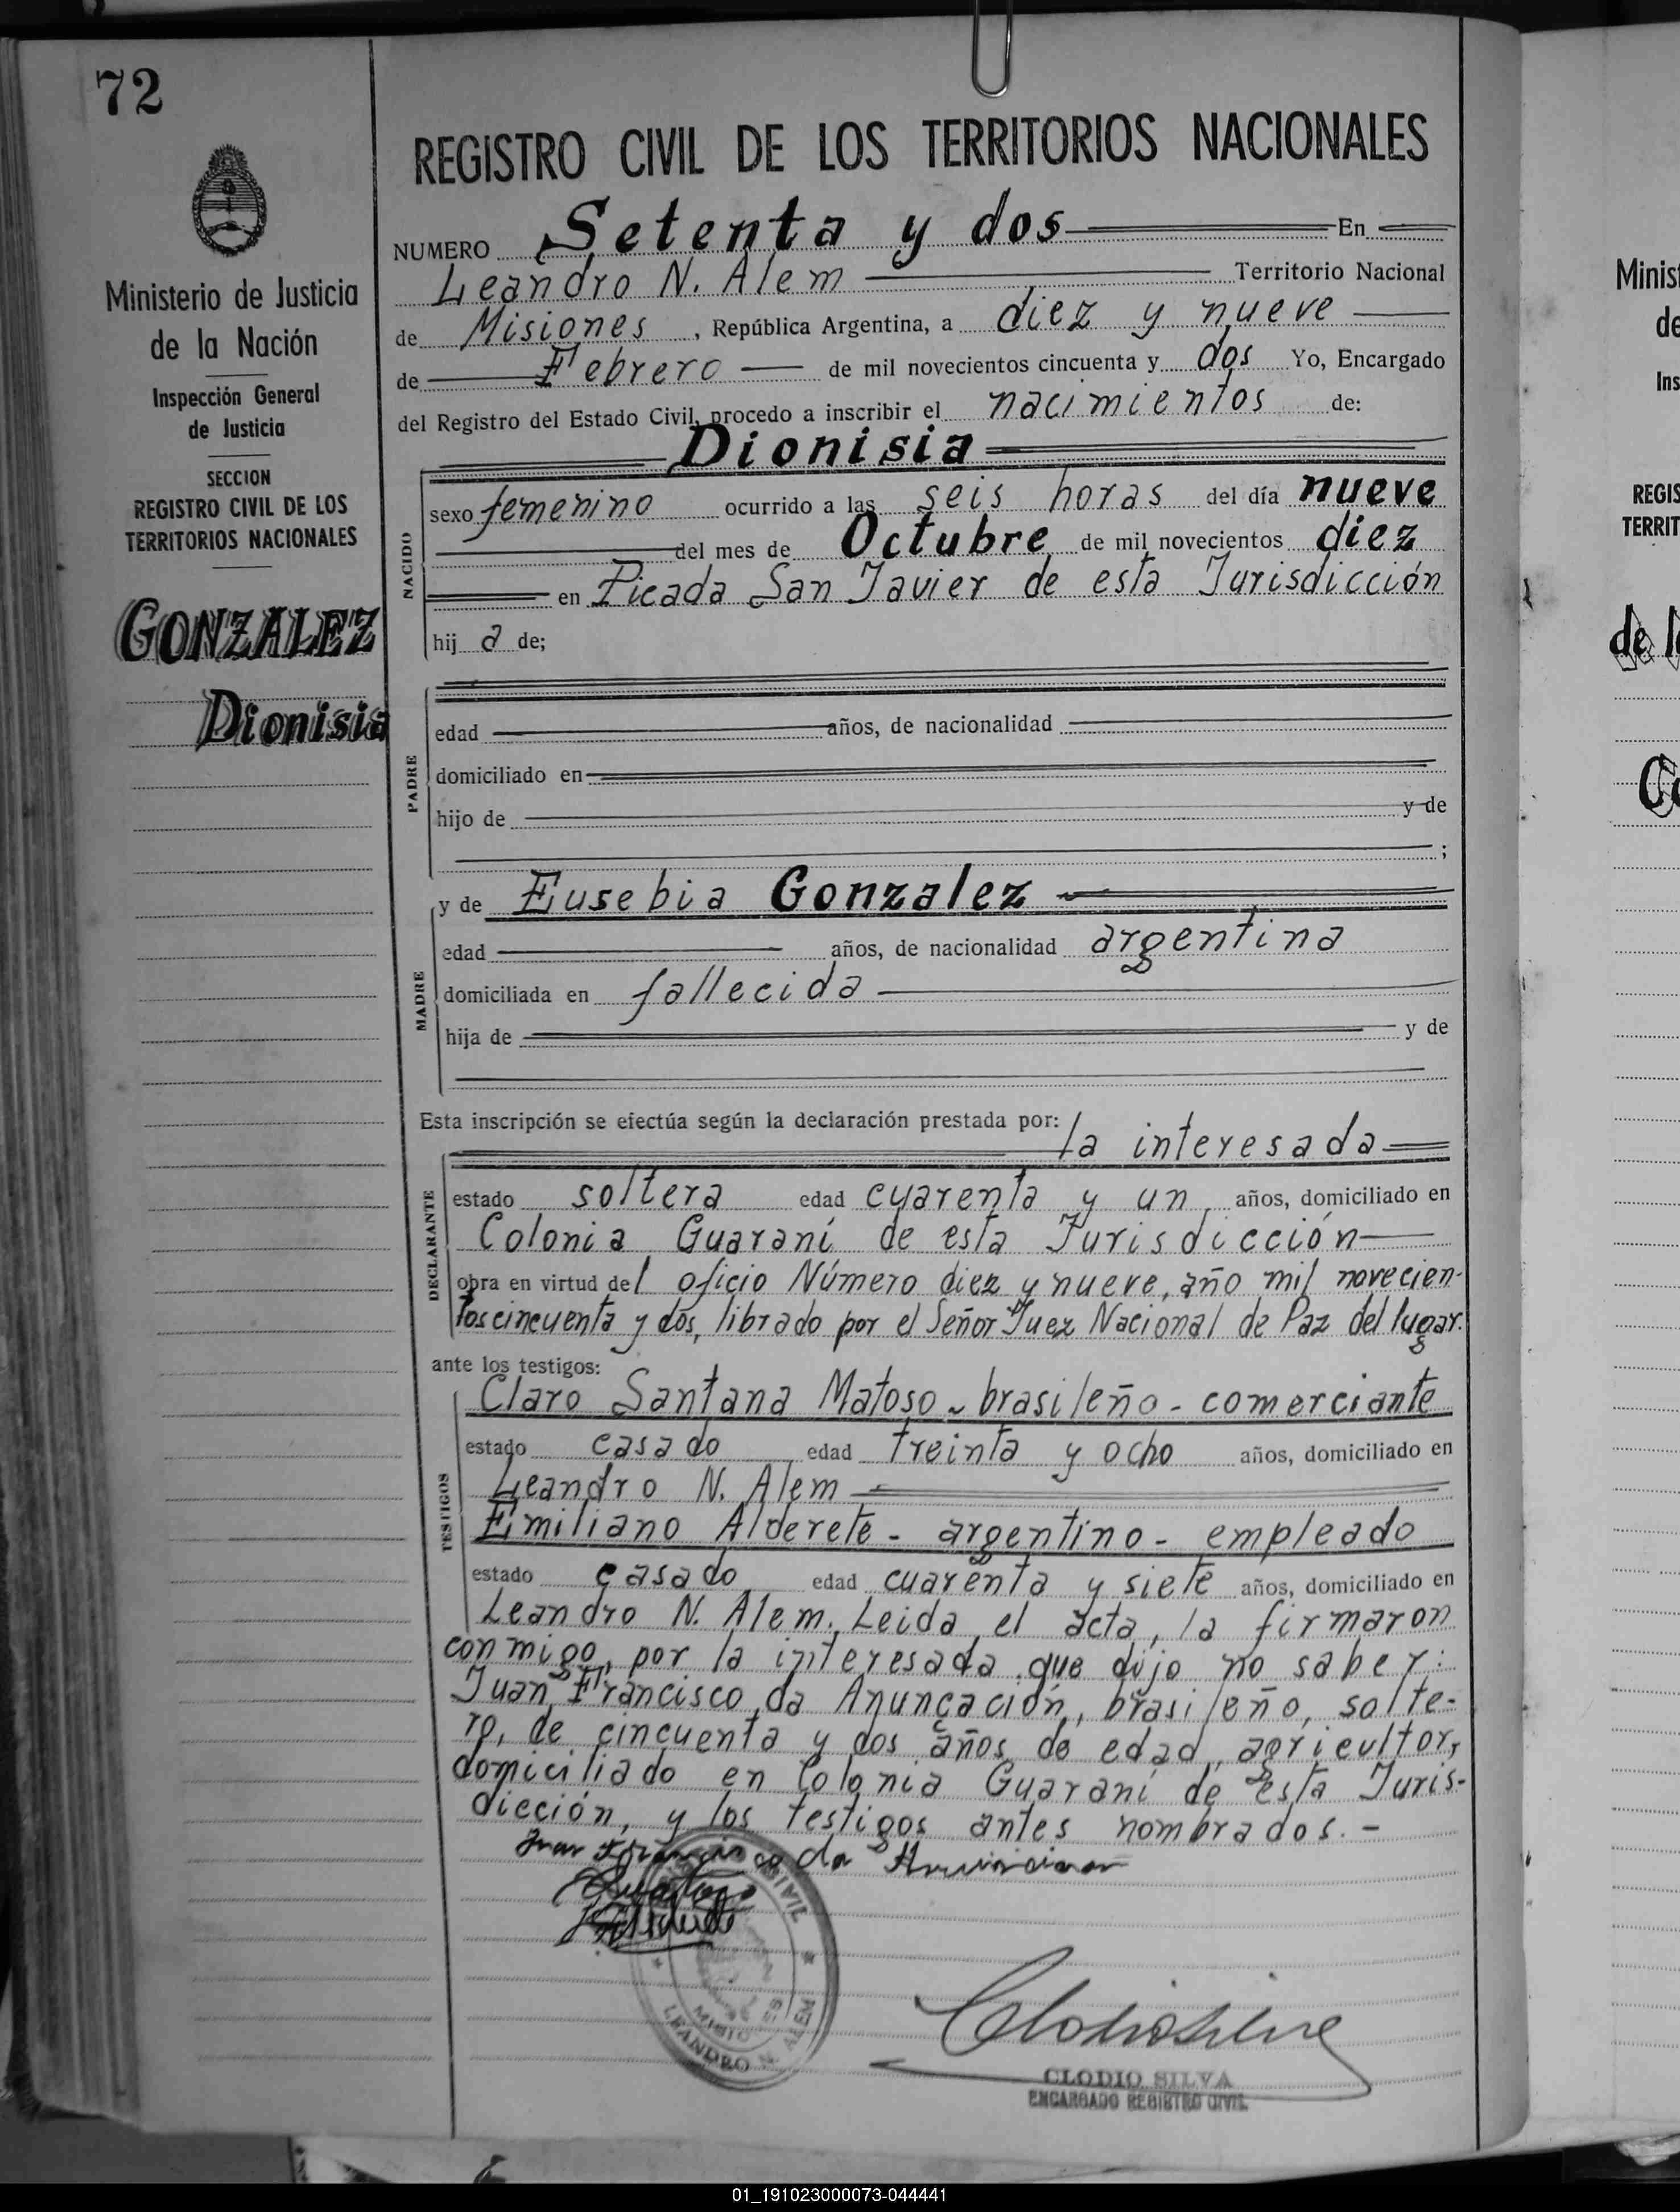 72
Ministerio de Justicia
de la Nación
Inspección General
de Justicia
SECCION
REGISTRO CIVIL DE LOS
TERRITORIOS NACIONALES
GONZALEZ
Dionisia
REGISTRO CIVIL DE LOS TERRITORIOS NACIONALES
NUMERO Setenta y dos En
Leandro N. Alem Territorio Nacional
de Misiones, República Argentina, a diez y nueve
de Febrero de mil novecientos cincuenta y dos Yo, Encargado
del Registro del Estado Civil, procedo a inscribir el nacimientos de:
Dionisia
NACIDO
sexo femenino ocurrido a las seis horas del día nueve
del mes de Octubre de mil novecientos diez
en Picada San Javier de esta Jurisdicción
hij a de;
PADRE
edad años, de nacionalidad
domiciliado en
hijo de y de
;
y de Eusebia Gonzalez
MADRE
edad años, de nacionalidad argentina
domiciliada en fallecida
hija de y de
Esta inscripción se efectúa según la declaración prestada por:
la interesada
DECLARANTE
estado soltera edad cuarenta y un años, domiciliado en
Colonia Guaraní de esta Jurisdicción
obra en virtud del oficio Número diez y nueve, año mil novecien-
tos cincuenta y dos, librado por el Señor Juez Nacional de Paz del lugar.
ante los testigos:
TESTIGOS
Claro Santana Matoso - brasileño - comerciante
estado casado edad treinta y ocho años, domiciliado en
Leandro N. Alem
Emiliano Alderete - argentino - empleado
estado casado edad cuarenta y siete años, domiciliado en
Leandro N. Alem. Leida el acta, la firmaron
conmigo, por la interesada que dijo no saber:
Juan Francisco da Anuncación, brasileño, solte-
ro, de cincuenta y dos años de edad, agricultor,
domiciliado en Colonia Guaraní de esta Juris-
dicción, y los testigos antes nombrados. -
Juan Francisco da Anunciacion
CIVIL
LEANDRO N. ALEM
Clodio Silva
CLODIO SILVA
ENCARGADO REGISTRO CIVIL
Minist
de
Ins
REGIS
TERRIT
de l
01_191023000073-044441